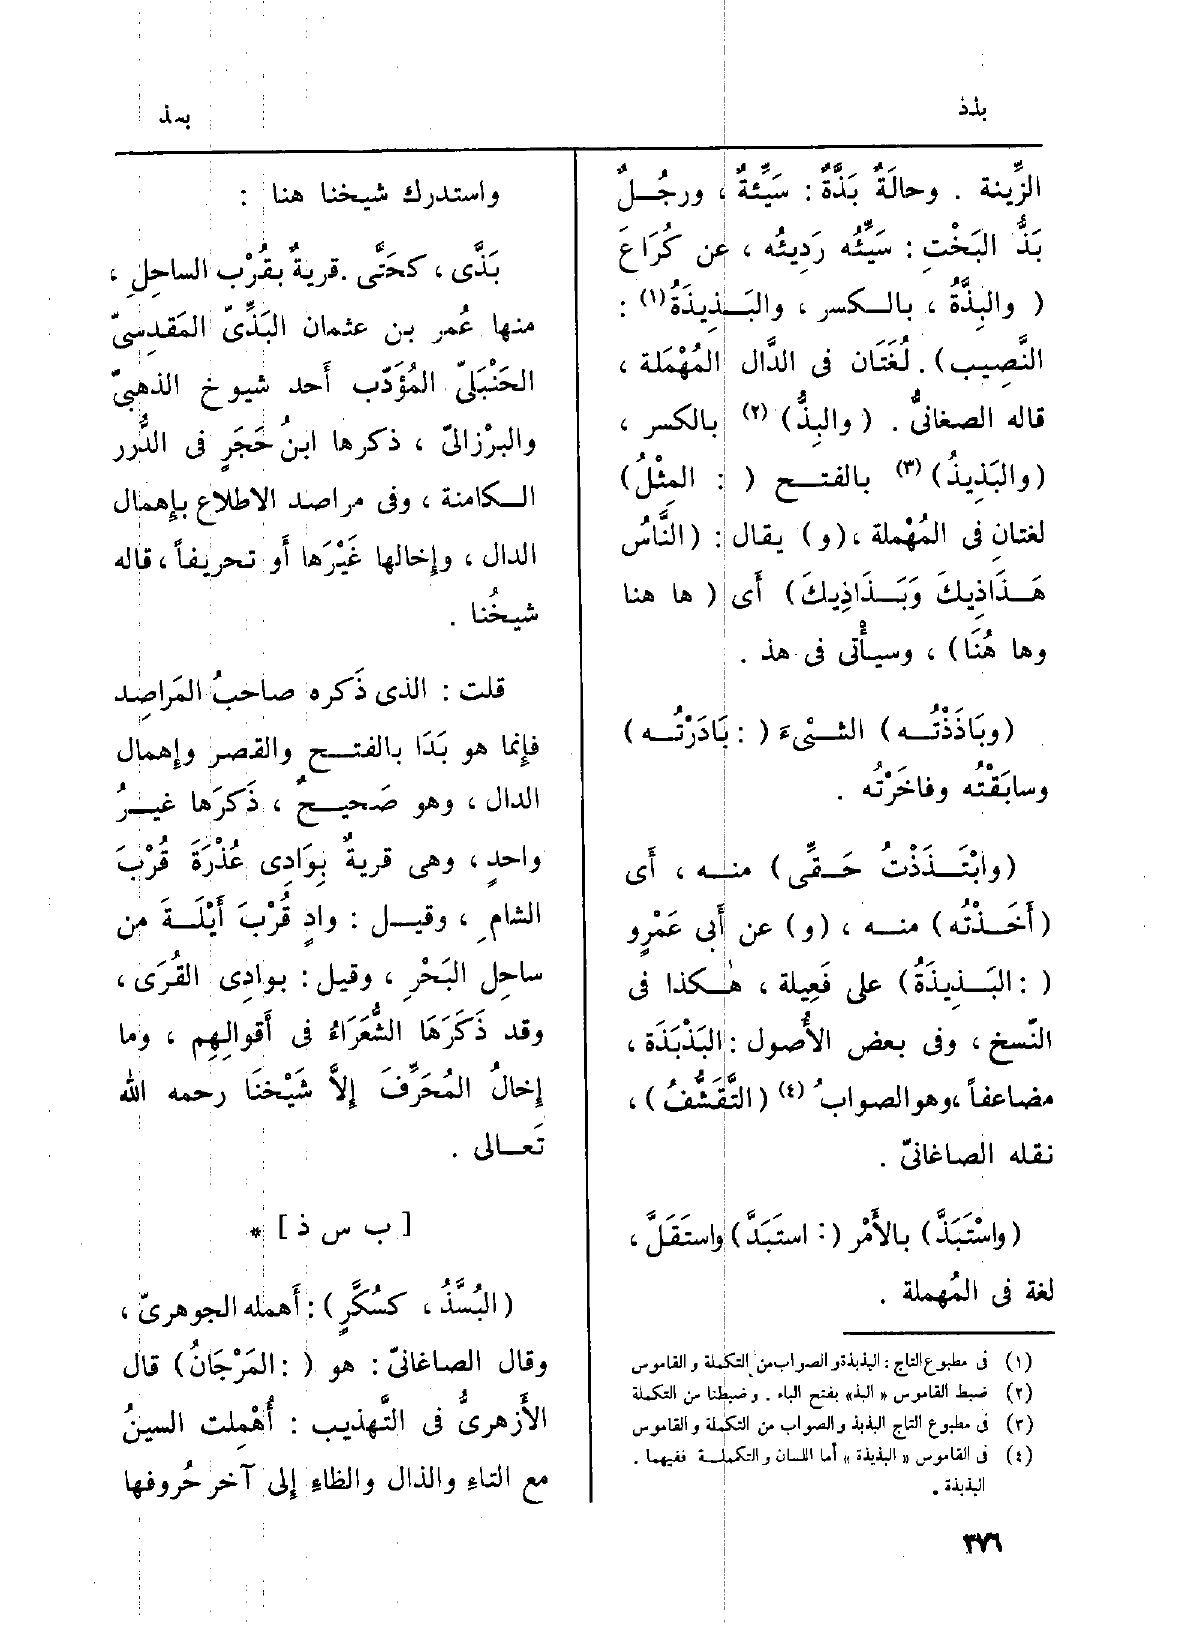 بذذ
بسذ
الزِّينة . وحالَةٌ بَذَّةٌ : سَيِّئةٌ ، ورجُــلٌ
بَذُّ البَخْتِ : سَيِّئُه رَدِيئُه ، عن كُرَاعَ
( والبِذَّةُ ، بالــكسر ، والبَــذِيذَةُ(١) :
النَّصِيب) . لُغَتَان فى الدَّال المُهْمَلة ،
قاله الصغانىُّ . ( والبِذُّ ) (٢) بالكسر ،
(والبَذِيذُ) (٣) بالفتــح ( : المِثْلُ)
لغتانِ فى المُهْملة ، (و) يقال : (النَّاسُ
هَــذَاذِيكَ وَبَــذَاذِيكَ) أى ( ها هنا
وها هُنَا) ، وسيأْتى فى هذ .
(وبَاذَذْتُــه) الشىْءَ ( : بَادَرْتُــه )
وسابَقْتُه وفاخَرْتُه .
(وابْتَــذَذْتُ حَــقِّى) منــه ، أى
(أَخَــذْتُه) منــه ، (و) عن أَبى عَمْرٍو
( : البَــذِيذَةُ) على فَعِيلة ، هٰــكذا فى
النّسخ ، وفى بعض الأُصول : البَذْبَذَة ،
مضاعفاً ،وهو الصوابُ (٤) (التَّقَشُّفُ) ،
نقله الصاغانىّ .
(واسْتَبَذَّ) بالأَمْر ( : استَبَدَّ) واستَقَلَّ ،
لغة فى المُهملة .
(١) فى مطبوع التاج : البذبذة والصواب من التكملة والقاموس
(٢) ضبط القاموس « البذ » بفتح الباء . وضبطنا من التكملة
(٣) فى مطبوع التاج البذبذ والصواب من التكملة والقاموس
(٤) فى القاموس « البذيذة » أما اللسان والتكملــة ففيهما .
البذبذة .
واستدرك شيخنا هنا :
بَذَّى ، كحَتَّى . قريةٌ بقُرْب الساحِلِ ،
منها عُمر بن عثمان البَذِّىّ المَقدِسىّ
الحَنْبَلىّ المُؤَدّب أَحد شيوخ الذهبىّ
والبرْزالىّ ، ذكرها ابنُ حَجَرٍ فى الدُّرر
الــكامنة ، وفى مراصد الاطلاع بإِهمال
الدال ، وإِخالها غَيْرَها أو تحريفاً ، قاله
شيخُنا .
قلت : الذى ذَكره صاحبُ المَراصِد
فإِنما هو بَدَا بالفتــح والقصر وإِهمال
الدال ، وهو صَحيــحٌ ، ذَكرَها غيــرُ
واحدٍ ، وهى قريةٌ بِوَادِى عُذْرَةَ قُرْبَ
الشام ، وقيــل : وادٍ قُرْبَ أَيْلَــةَ من
ساحلِ البَحْرِ ، وقيل : بوادِى القُرَى ،
وقد ذَكَرَهَا الشُّعَرَاءُ فى أَقوالِهِم ، وما
إِخالُ المُحَرِّفَ إِلاَّ شَيْخنَا رحمه الله
تَعــالى .
[ ب س ذ ] *
(البُسَّذُ ، كسُكَّرٍ) : أَهمله الجوهرىّ ،
وقال الصاغانىّ : هو ( : المَرْجَانُ) قال
الأَزهرىُّ فى التَّهذيب : أُهْمِلت السينُ
مع التاءِ والذال والظاءِ إِلى آخر حُروفها
٣٧٦